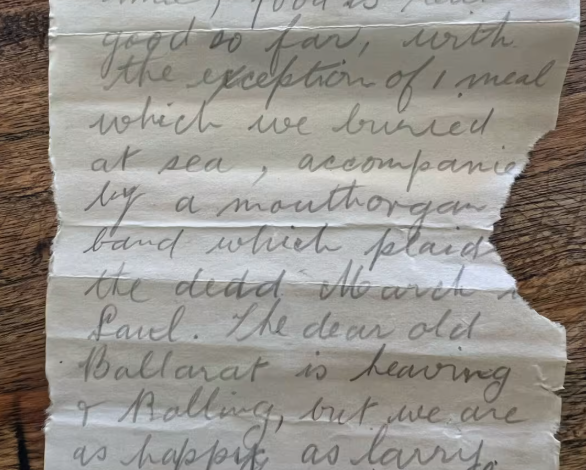 food is real
good so far, with
the exception of 1 meal
which we buried
at sea, accompanie
by a mouthorgan
band which plaid
the dedd March i
Saul. The dear old
Ballarat is heaving
& Rolling, but we are
as happy as larry.